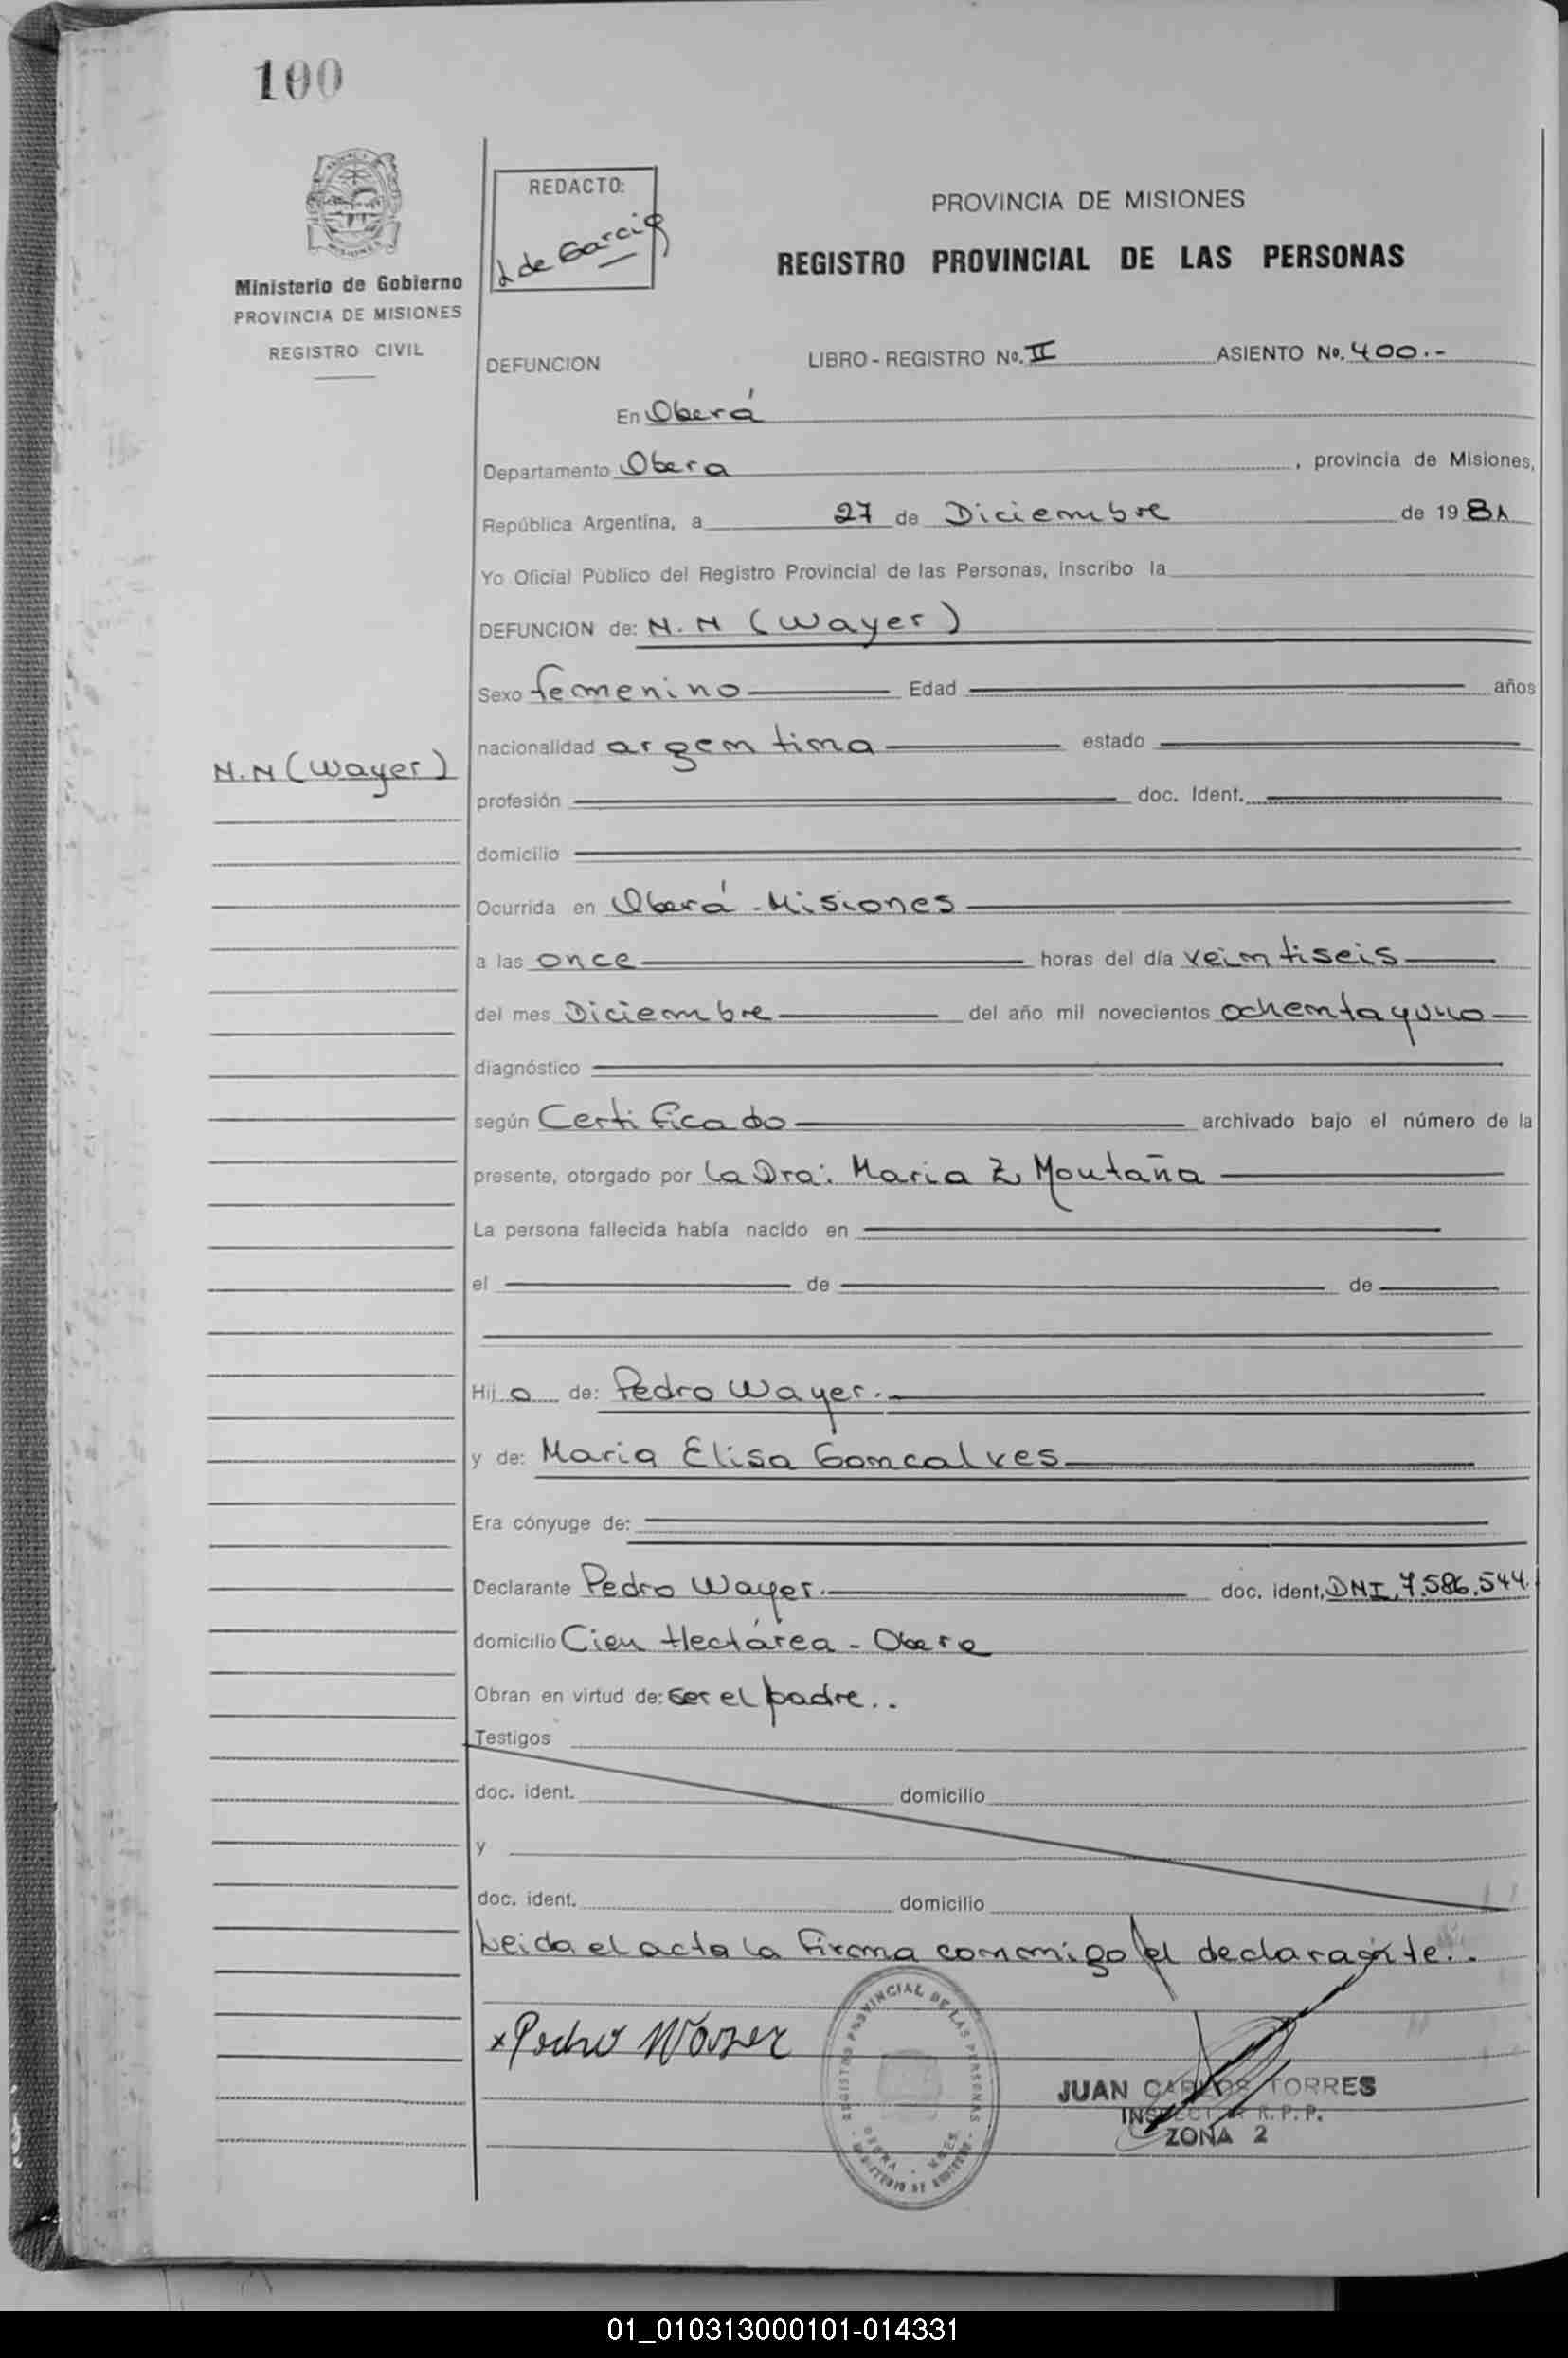 100
REDACTO:
L de Garcia
Ministerio de Gobierno
PROVINCIA DE MISIONES
REGISTRO CIVIL
PROVINCIA DE MISIONES
REGISTRO PROVINCIAL DE LAS PERSONAS
DEFUNCION LIBRO - REGISTRO No. II ASIENTO No. 400.-
En Oberá
Departamento Obera, provincia de Misiones,
República Argentina, a 27 de Diciembre de 1981
Yo Oficial Público del Registro Provincial de las Personas, inscribo la
DEFUNCION de: N.N (Wayer)
Sexo femenino Edad años
nacionalidad argentina estado
N.N (Wayer)
profesión doc. Ident.
domicilio
Ocurrida en Oberá - Misiones
a las once horas del día veintiseis
del mes Diciembre del año mil novecientos ochenta y uno
diagnóstico
según Certificado archivado bajo el número de la
presente, otorgado por la Dra: Maria Z, Montaña
La persona fallecida había nacido en
el de de
Hij a de: Pedro Wayer.
y de: Maria Elisa Goncalves
Era cónyuge de:
Declarante Pedro Wayer. doc. ident. DNI, 7.586.544.
domicilio Cien Hectárea - Obera
Obran en virtud de: Ser el padre..
Testigos
doc. ident. domicilio
y
doc. ident. domicilio
Leida el acta la firma conmigo el declarante..
x Pedro Wayer
REGISTRO PROVINCIAL DE LAS PERSONAS
OBERA - MNES.
MINISTERIO DE GOBIERNO
JUAN CARLOS TORRES
INSPECTOR R.P.P.
ZONA 2
01_010313000101-014331